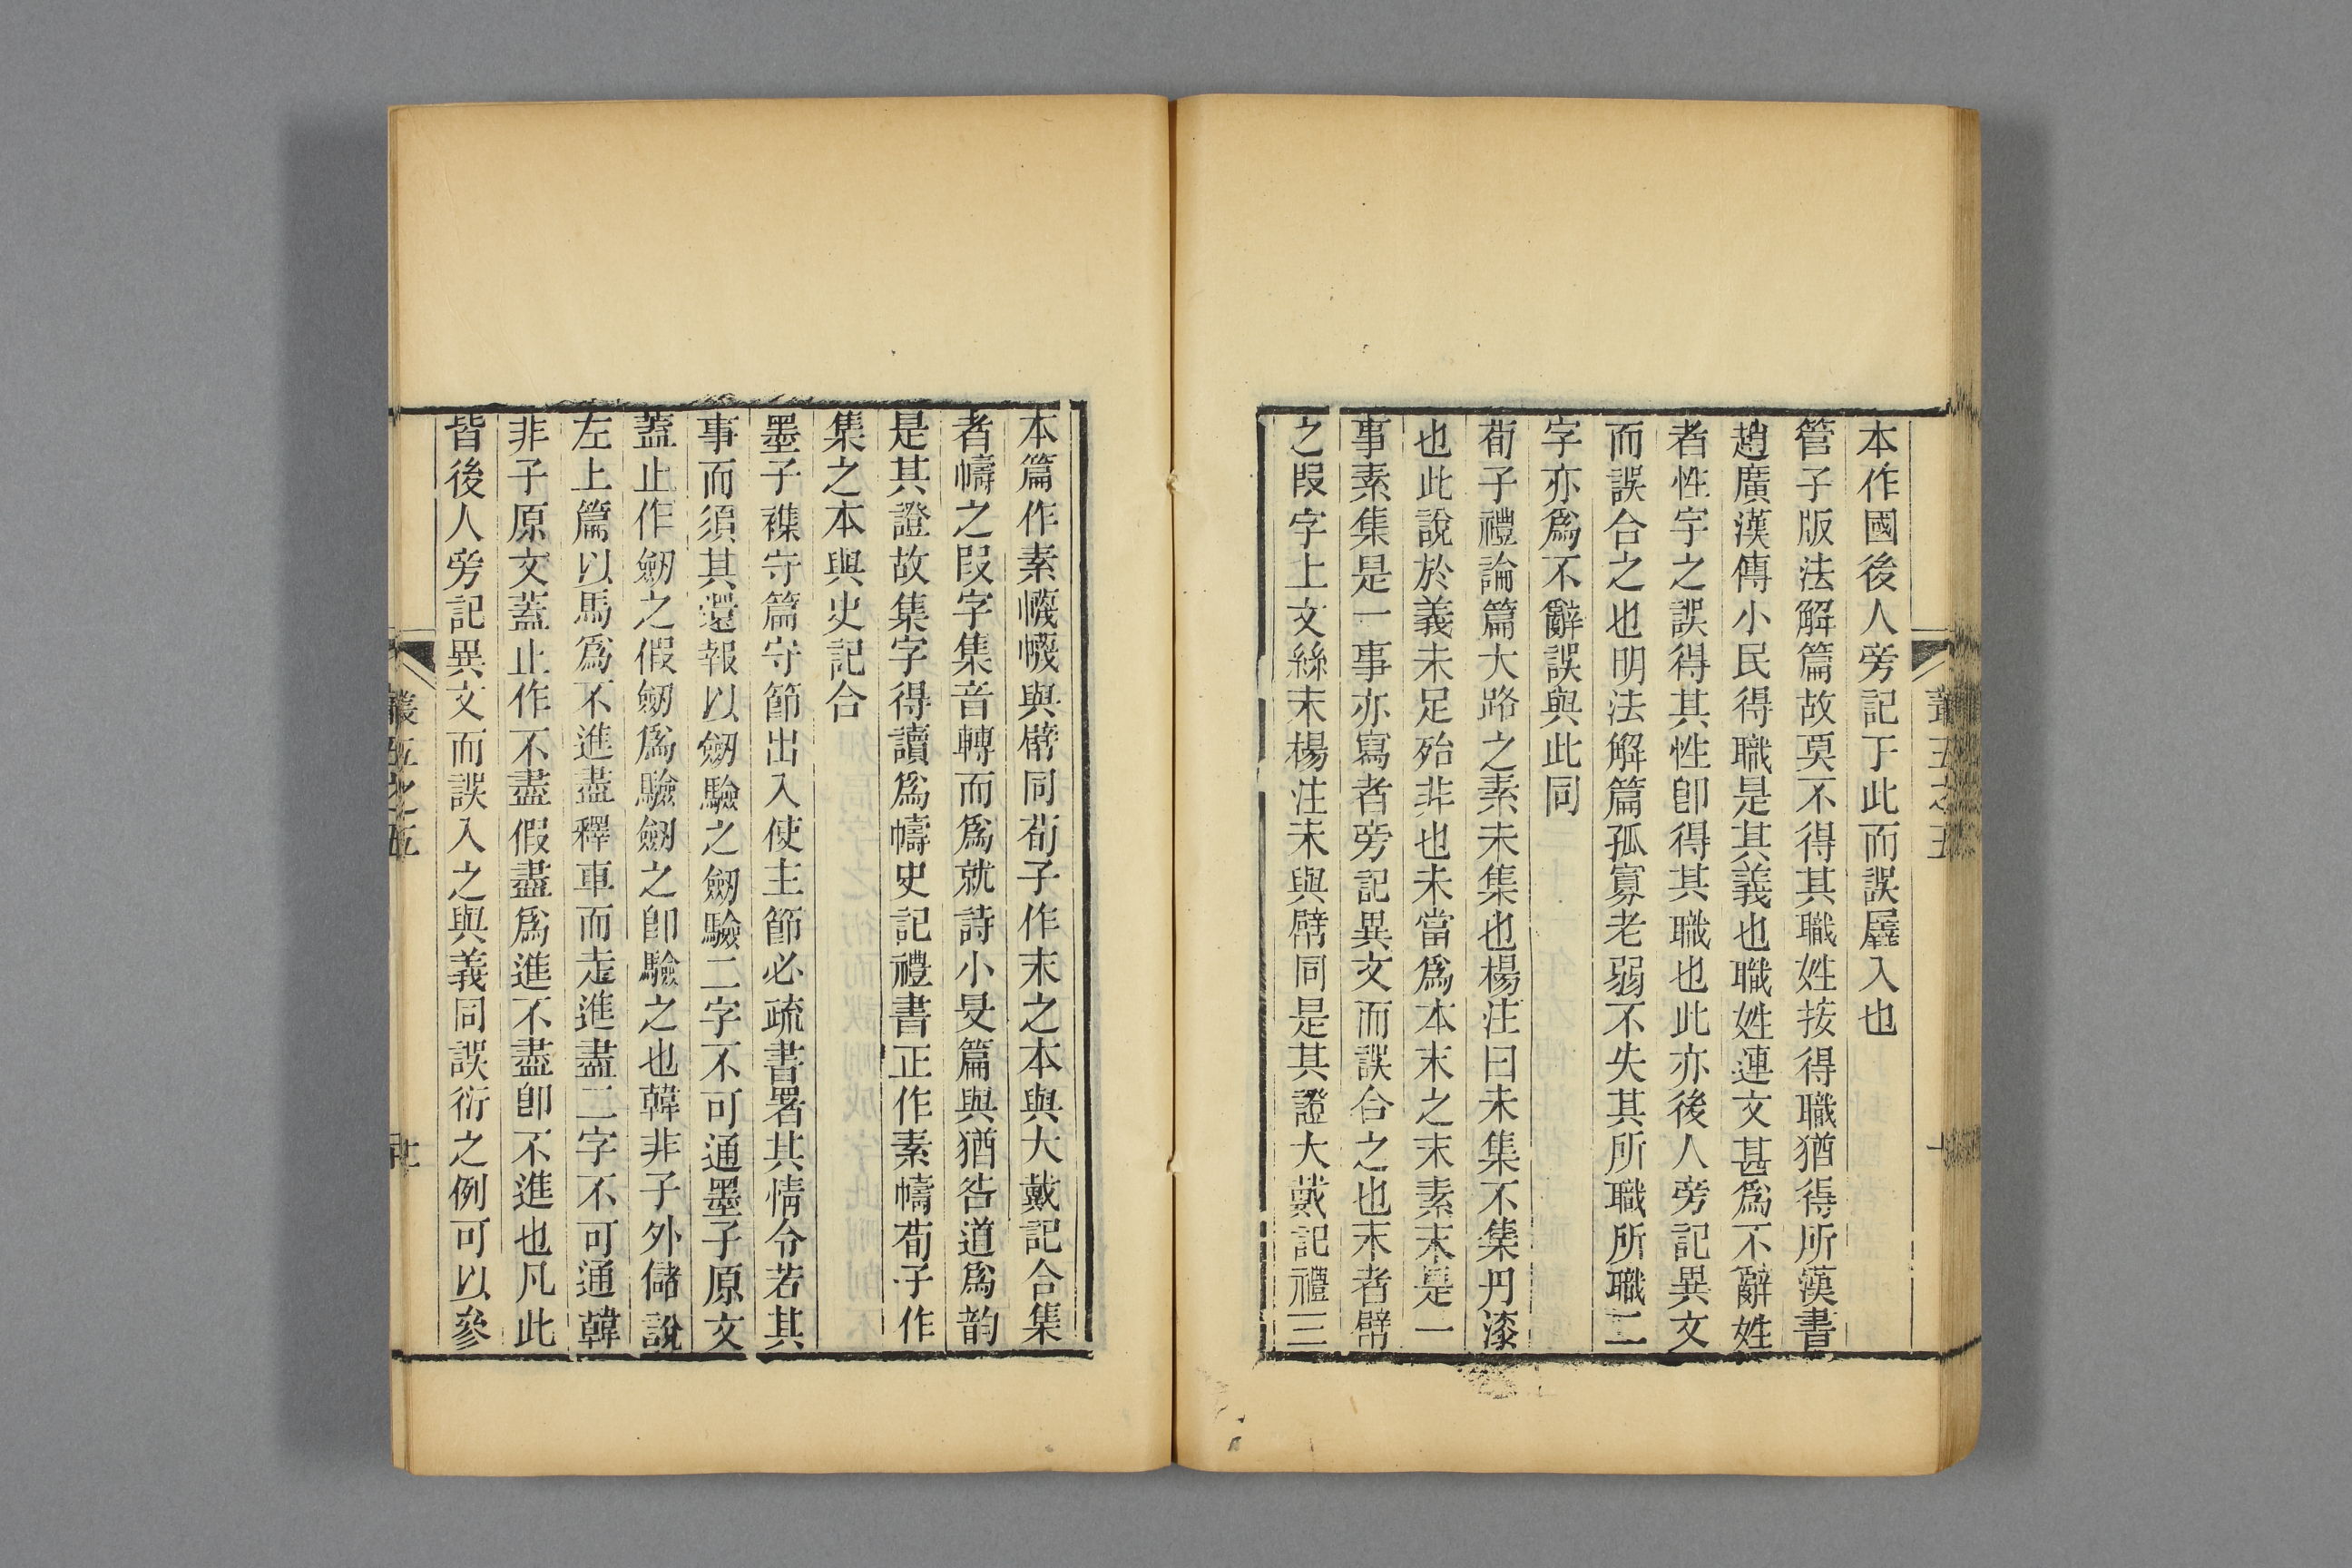 本作國後人旁記于此而誤羼入也
管子版法解篇故莫不得其職姓按得職猶得所漢書
趙廣漢傳小民得職是其義也職姓連文甚爲不辭姓
者性字之誤得其性卽得其職也此亦後人旁記異文
而誤合之也明法解篇孤寡老弱不失其所職所職二
字亦爲不辭誤與此同
荀子禮論篇大路之素未集也楊注曰未集不集丹漆
也此說於義未足殆非也未當爲本末之末素末是一
事素集是一事亦寫者旁記異文而誤合之也末者幦
之叚字上文絲末楊注末與幦同是其證大戴記禮三
本篇作素幭幭與幦同荀子作末之本與大戴記合集
者幬之叚字集音轉而爲就詩小旻篇與猶咎道爲韵
是其證故集字得讀爲幬史記禮書正作素幬荀子作
集之本與史記合
墨子襍守篇守節出入使主節必疏書署其情令若其
事而須其還報以劒驗之劒驗二字不可通墨子原文
蓋止作劒之假劒爲驗劒之卽驗之也韓非子外儲說
左上篇以馬爲不進盡釋車而走進盡二字不可通韓
非子原文蓋止作不盡假盡爲進不盡卽不進也凡此
皆後人旁記異文而誤入之與義同誤衍之例可以參
叢五之五